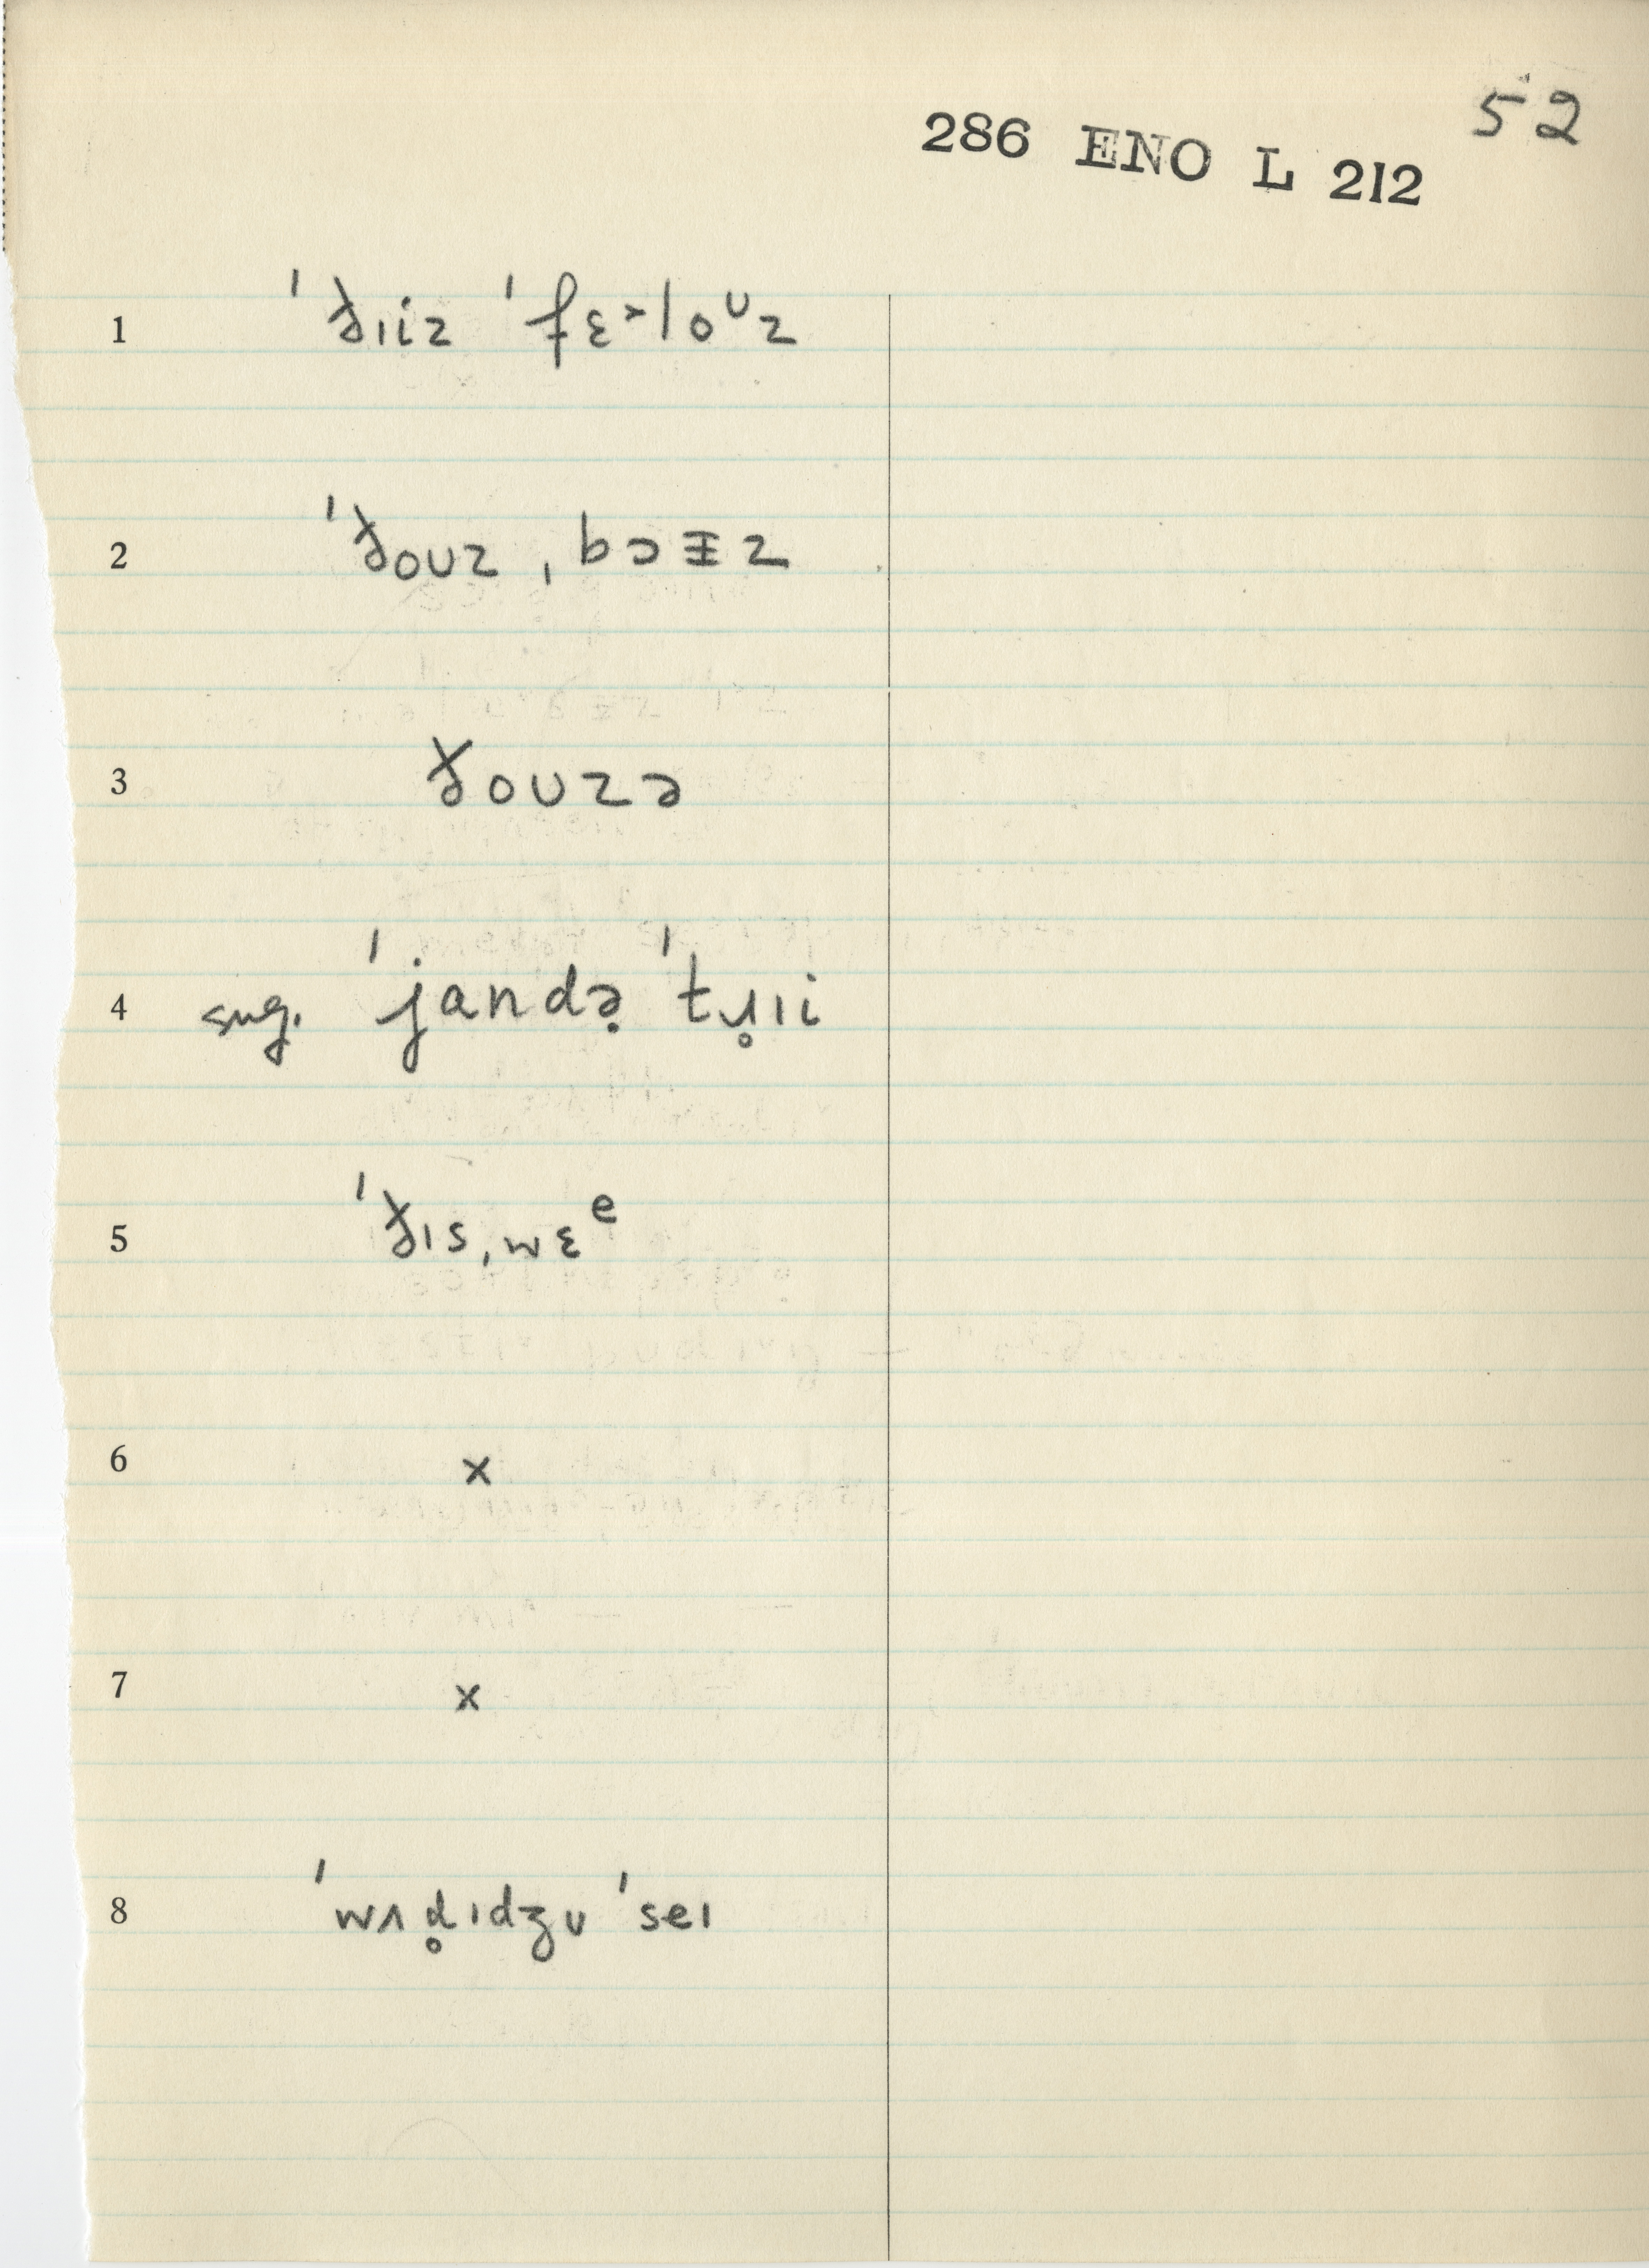 52
286 ENO L 212
1 ˈðɪiz ˈfɛ˃loᶷz
2 ˈðoʊz ˌbɔɪz
3 ðoʊzə
4 sug. ˈjandə̣ ˈtɹ̥ɪi
5 ˈðɪsˌwɛᵉ
6 x
7 x
8 ˈwʌd̥ɪdʒʊ ˈseɪ